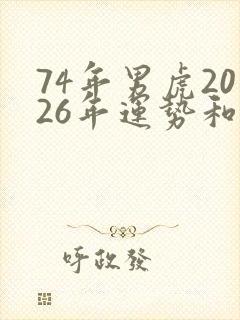 74年男虎20
26年運势和
呼政發